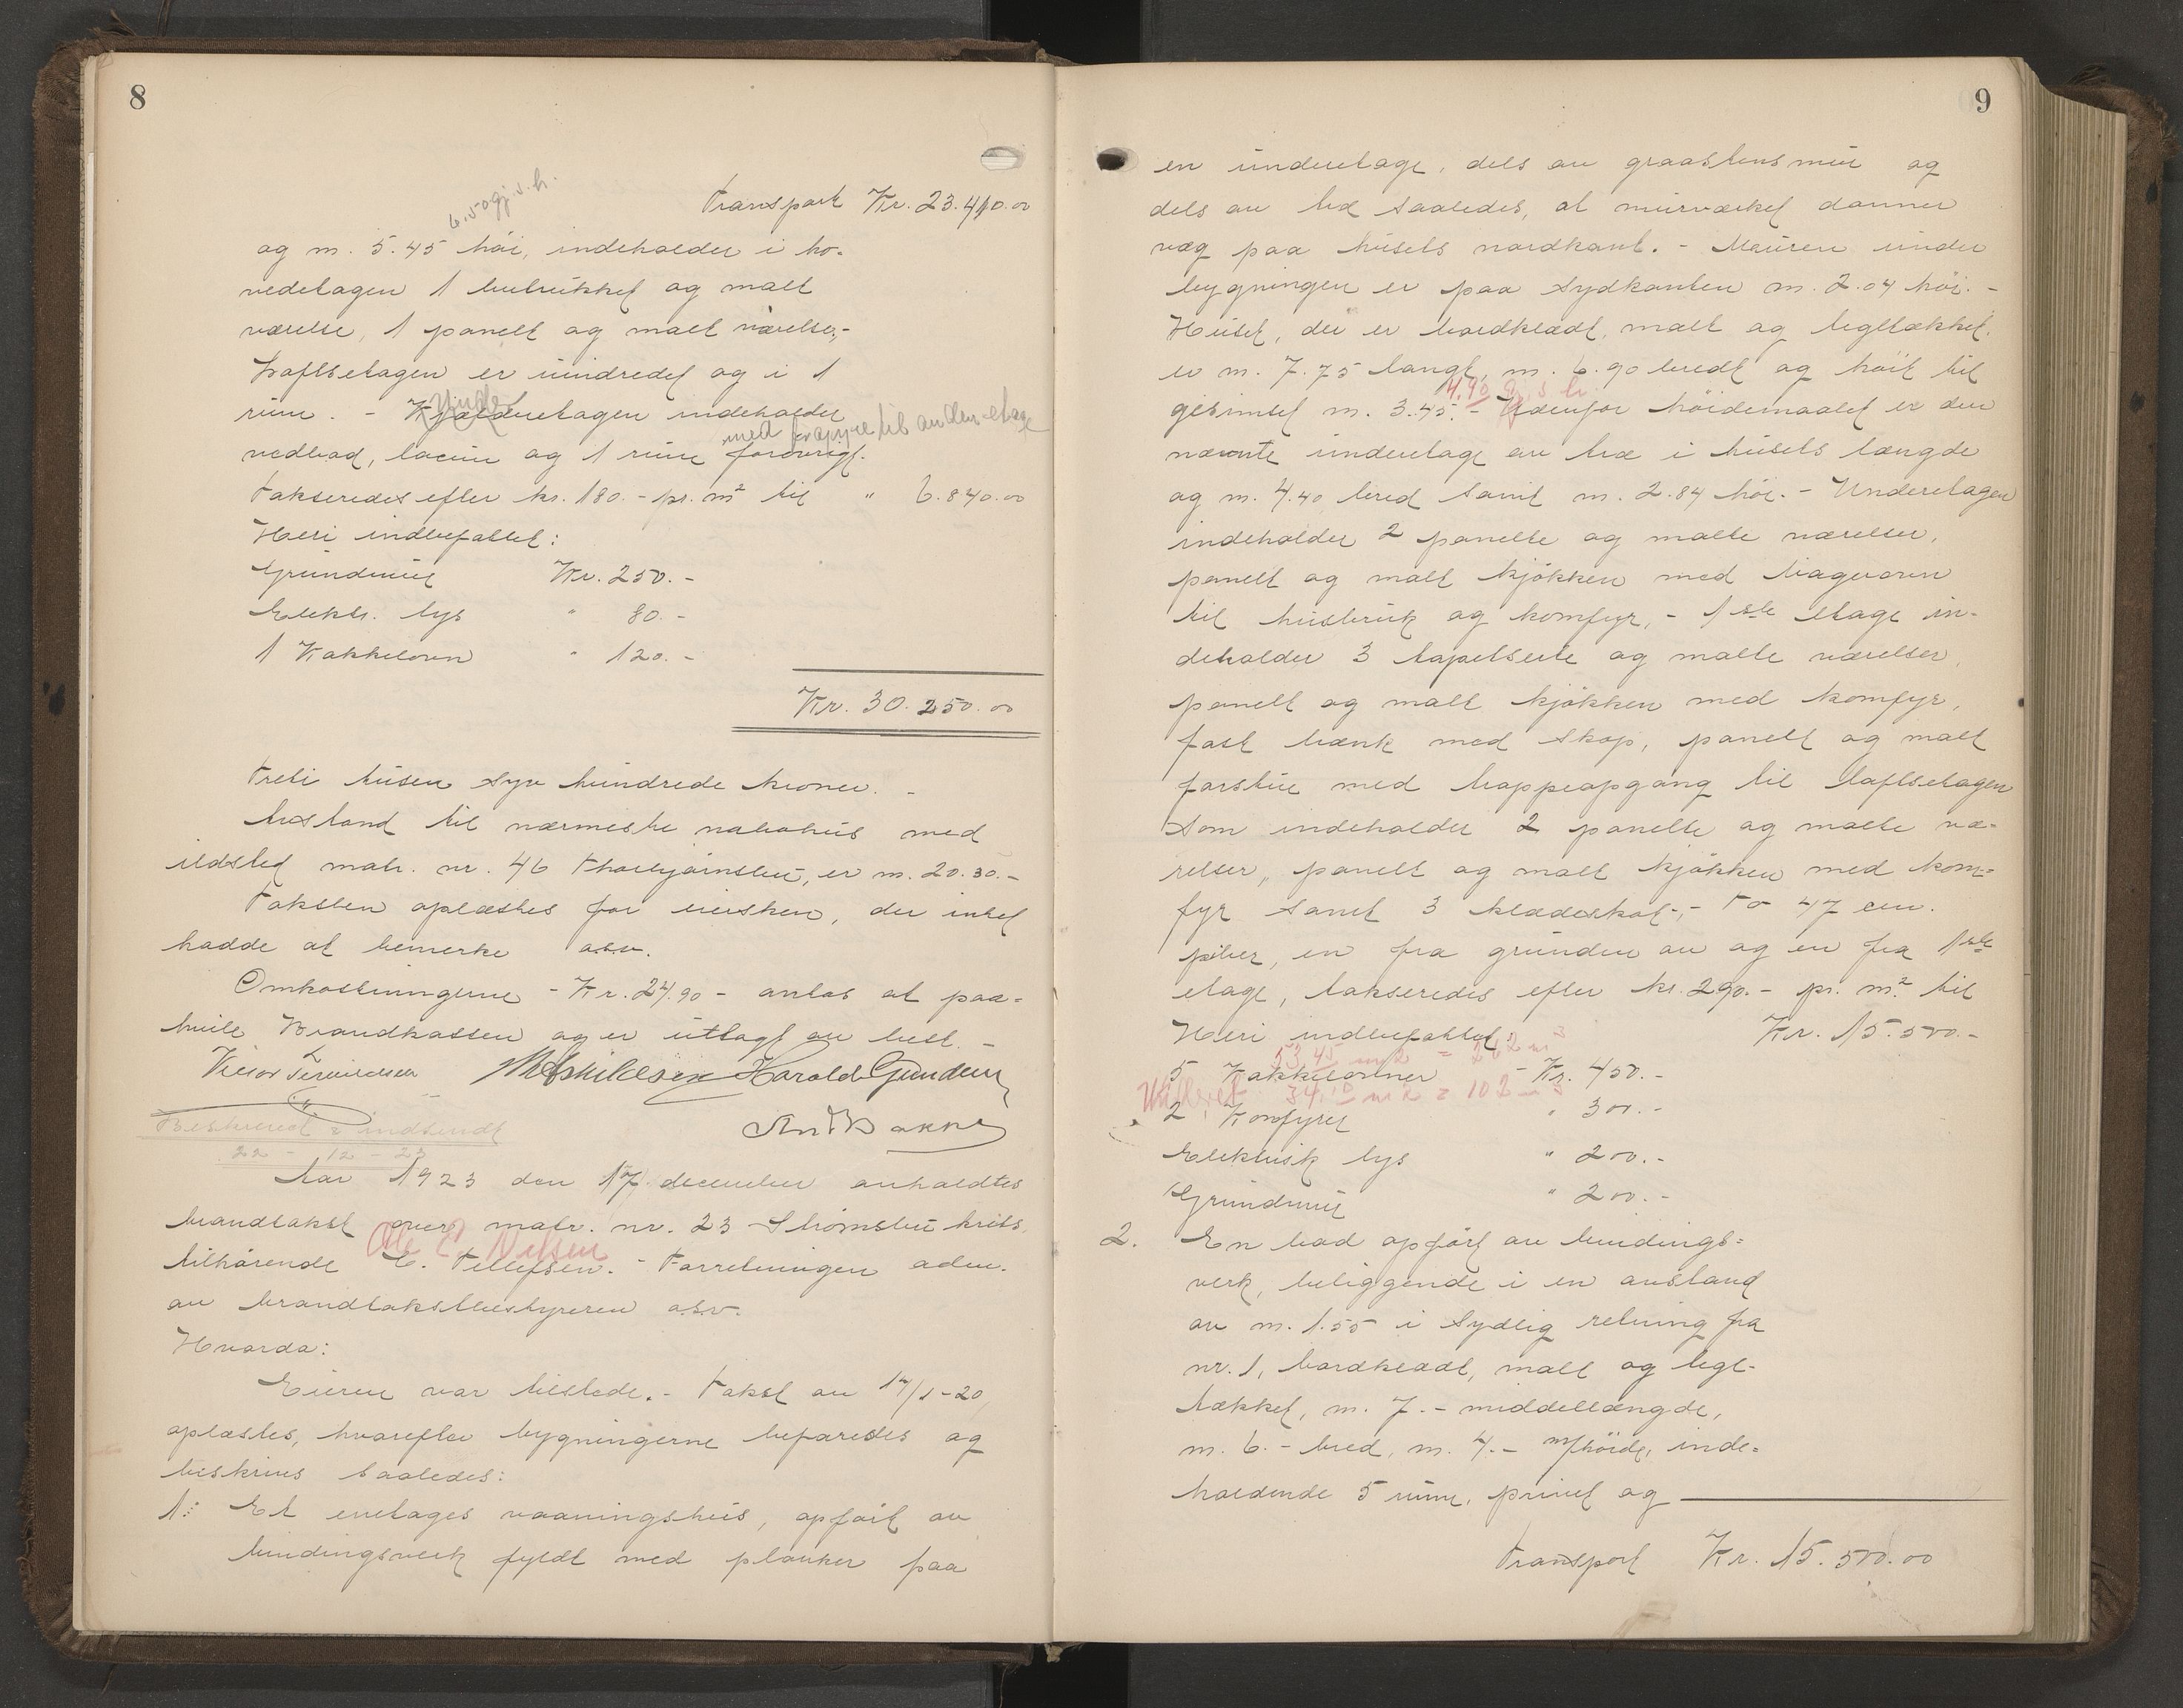 8
6.50 gj.s.h.
Transport Kr. 23.410.00
og m. 5.45 höi, indeholder i ho-
vedetagen 1 betrukket og malt
værelse, 1 panelt og malt værelse,-
Loftsetagen er uindredet og i 1
rum. - Kjælderetagen indeholder
Under
med frapyre til anden etage
vedbod, locum og 1 rum forövrigt.
Takseredes efter kr. 180.- pr. m² til " 6.840.00
Heri indbefattet:
Grundmur Kr. 250.-
Elektr. lys " 80.-
1 Kakkelovn " 120.-
Kr. 30.250.00
Treti tusen syv hundrede kroner. -
Avstand til nærmeste nabohus med
ildsted matr. nr. 46 Thorbjörnsbu, er m. 20.30.-
Taksten oplæstes for eiersken, der intet
hadde at bemerke o.s.v.
Omkostningerne - Kr. 24.90 - antas at paa-
hvile Brandkassen og er utlagt av best. -
Victor Terkildsen M Eskildsen Harold Gundersen
And Bakke
Beskrevet & indsendt
22 - 12 - 23
Aar 1923 den 17. december avholdtes
brandtakst over matr. nr. 23 Strömsbu krets
Ole E. Nilsen
tilhörende E. Tellefsen. - Forretningen adm.
av brandtakstbestyreren o.s.v.
Hvorda:
Eieren var tilstede. - Takst av 17/1-20
oplæstes, hvorefter bygningerne befaredes og
beskrives saaledes:
1: Et enetages vaaningshus, opfört av
bindingsverk fyldt med planker paa
9
en underetage, dels av graastensmur og
dels av træ saaledes, at murværket danner
væg paa husets nordkant. - Muren under
bygningen er paa sydkanten m. 2.04 höi. -
Huset, der er bordklædt, malt og tegltækket,
er m. 7.75 langt, m. 6.90 bredt og höit til
4.90 gj. s. h.
gesimset m. 3.45. - Udenfor höidemaalet er den
nævnte underetage av træ i husets længde
og m. 4.40 bred samt m. 2.84 höi. - Underetagen
indeholder 2 panelte og malte værelser,
panelt og malt kjökken med bagerovn
til husbruk og komfyr, - 1ste etage in-
deholder 3 tapetserte og malte værelser,
panelt og malt kjökken med komfyr,
fast bænk med skap, panelt og malt
forstue med trappeopgang til loftsetagen
som indeholder 2 panelte og malte væ-
relser, panelt og malt kjökken med kom-
fyr samt 3 klædeskot, - to 47 cm.
piber, en fra grunden av og en fra 1ste
etage, takseredes efter kr. 290.- pr. m² til
Heri indbefattet: Kr. 15.500.-
53.45 m2 = 262 m3
5 Kakkelovner - Kr. 450.-
34.10 m2 = 102 m3
2 Komfyrer " 300.-
Elektrisk lys " 200.-
Grundmur " 200.-
2. En bod opfört av bindings-
verk, beliggende i en avstand
av m. 1.55 i sydlig retning fra
nr. 1, bordklædt, malt og tegl-
tækket, m. 7.- middellængde,
m. 6.- bred, m. 4.- m/höide, inde-
holdende 5 rum, privet og
Transport Kr. 15.500.00